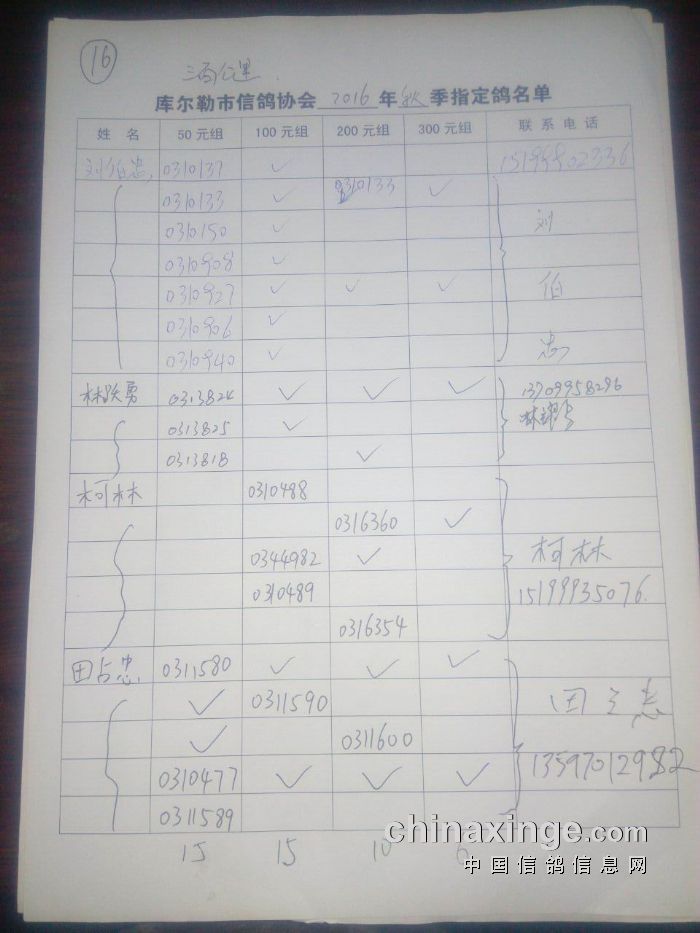 16
三百公里
库尔勒市信鸽协会 2016 年 秋 季指定鸽名单
姓 名 50元组 100元组 200元组 300元组 联系电话
刘伯忠 0310137 ✓ 15199902336
0310133 ✓ 0310133 ✓
0310150 ✓ 刘
0310908 ✓
0310927 ✓ ✓ ✓ 伯
0310906 ✓
0310940 ✓ 忠
林跃勇 0313824 ✓ ✓ ✓ 13709958296
0313825 ✓
0313818 ✓
柯林 0310488
0316360 ✓
0344982 ✓ 柯林
0310489 15199935076
0316354
田占忠 0311580 ✓ ✓ ✓
✓ 0311590 田
✓ 0311600
0310477 ✓ ✓ ✓ 13597012982
0311589
15 15 10 6
chinaxinge.com
中国信鸽信息网